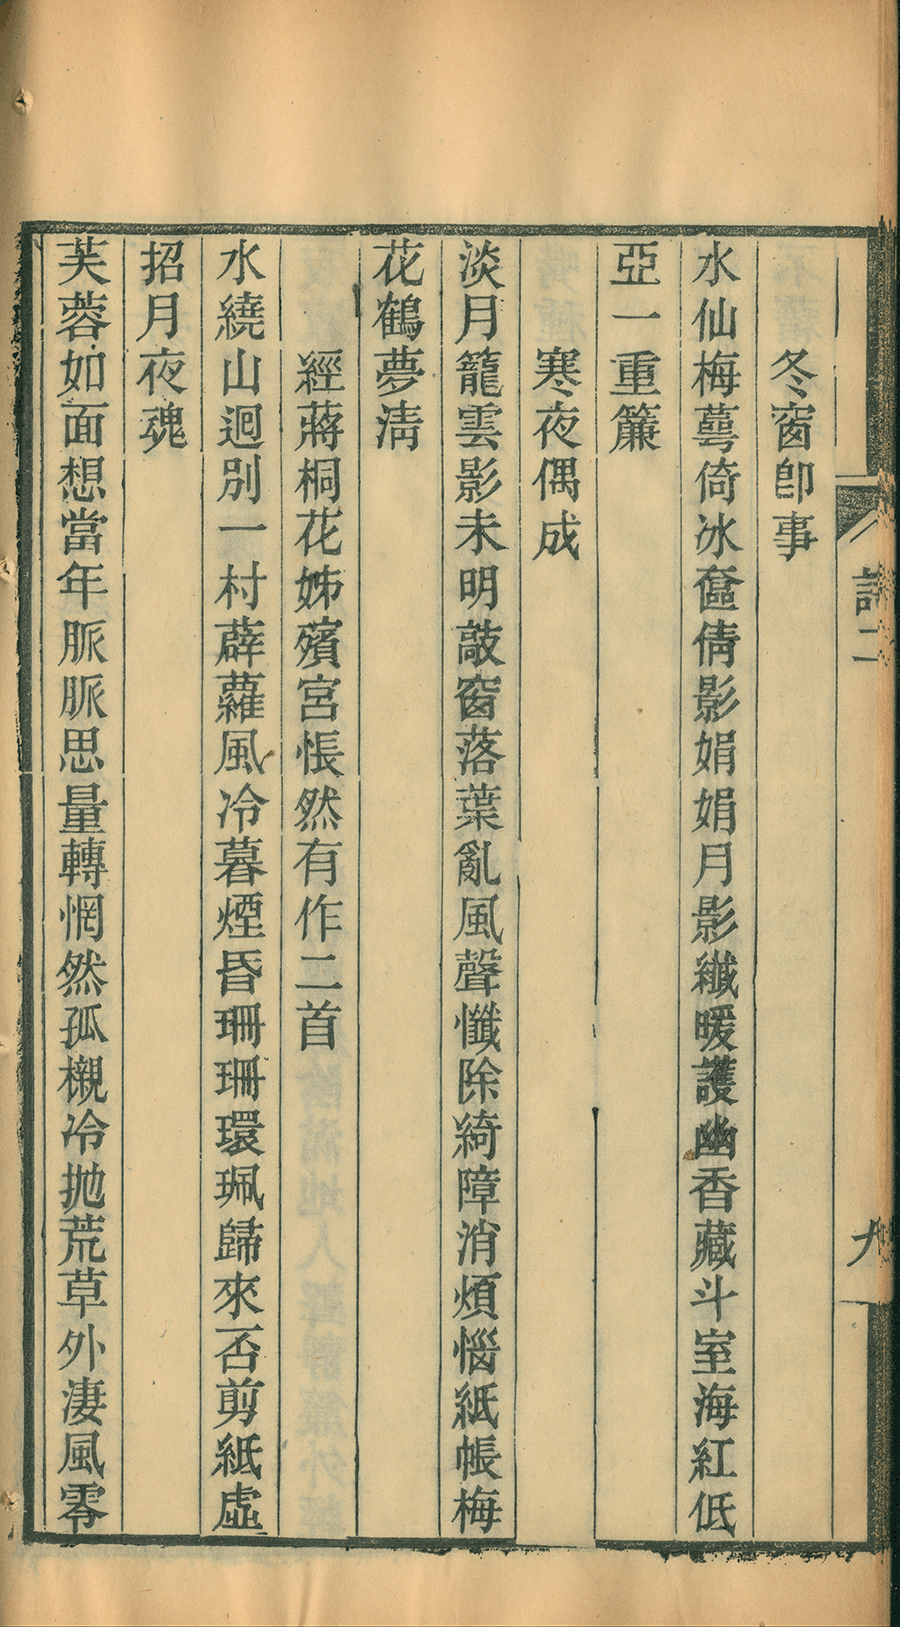 冬窗卽事
水仙梅萼倚冰奩倩影娟娟月影纖暖護幽香藏斗室海紅低
亞一重簾
寒夜偶成
淡月籠雲影未明敲窗落葉亂風聲懺除綺障消煩惱紙帳梅
花鶴夢淸
經蔣桐花姊殯宮悵然有作二首
水繞山迴別一村薜蘿風冷暮煙昏珊珊環珮歸來否剪紙虛
招月夜魂
芙蓉如面想當年脈脈思量轉惘然孤櫬冷拋荒草外淒風零
二
九